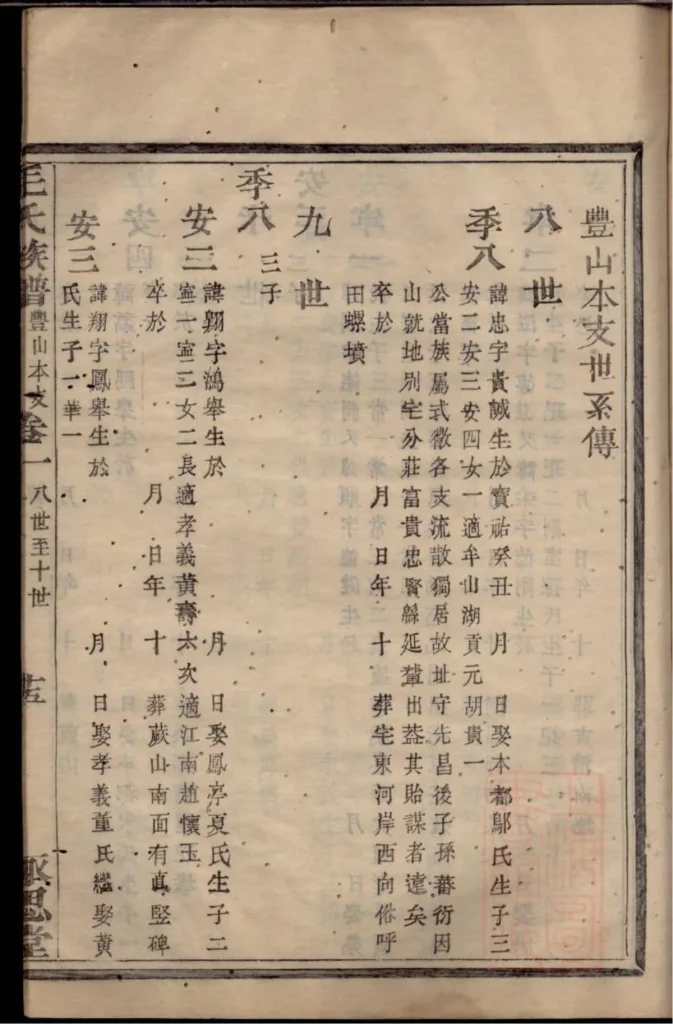 豐山本支世系傳
八世
季八 諱忠字貴誠生於寶祐癸丑 月 日娶本都鄔氏生子三
安二安三安四女一適牟山湖貢元胡貴一
公當族屬式微各支流散獨居故址守先昌後子孫蕃衍因
山就地別宅分莊富貴忠賢緜延輩出葢其貽謀者遠矣
卒於 月 日年 十 葬宅東河岸西向俗呼
田螺墳
九世
季八 三子
安三 諱翱字鴻舉生於 月 日娶鳳亭夏氏生子二
寗一寗二女二長適孝義黄壽六次適江南趙懷玉
卒於 月 日年 十 葬蕨山南面有真竪碑
安三 諱翔字鳳舉生於 月 日娶孝義董氏繼娶黄
氏生子一華一
氏族譜 豐山本支 卷一 八世至十世 思堂